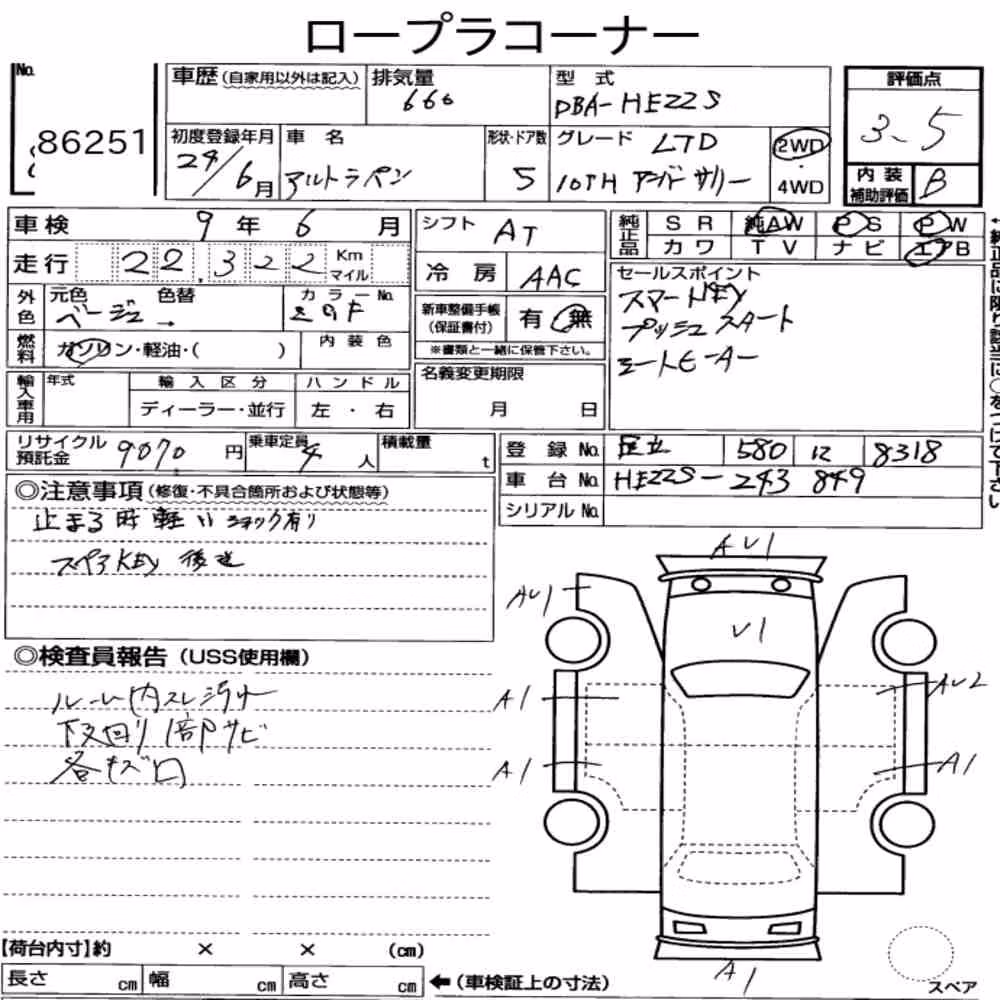 ロープラコーナー
No. 86251
車歴 (自家用以外は記入)
排気量 660
型式 DBA-HE22S
評価点 3.5
初度登録年月 24/6月
車名 アルトラパン
形状・ドア数 5
グレード LTD
10TH アニバーサリー
2WD
・
4WD
内装
補助評価 B
車検 9年 6月
シフト AT
純正品 SR 純AW PS PW
カワ TV ナビ エアB
走行 22,322 Km
マイル
冷房 AAC
セールスポイント
スマートKEY
プッシュスタート
シートヒーター
外色 元色 色替 カラーNo.
ベージュ →
新車整備手帳
(保証書付) 有 無
※書類と一緒に保管下さい。
燃料 ガソリン・軽油・( ) 内装色
名義変更期限
月 日
輸入車用 年式 輸入区分 ハンドル
ディーラー・並行 左・右
リサイクル
預託金 9070円
乗車定員 4人
積載量 t
登録No. 足立 580 12 8318
車台No. HE22S-243849
シリアルNo.
◎注意事項(修復・不具合箇所および状態等)
止まる時軽いショック有り
スペアKEY 後送
◎検査員報告 (USS使用欄)
ルーム内スレ汚れ
下回り1部サビ
各キズ凹
AU1
AU1
U1
A1
AU2
A1
A1
A1
【荷台内寸】約 × × (cm)
長さ cm 幅 cm 高さ cm ←(車検証上の寸法)
スペア
←純正品に限り該当に○をつけて下さい